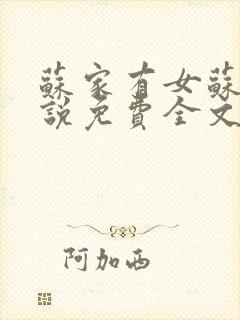 蘇家有女蘇
說免費全文
阿加西